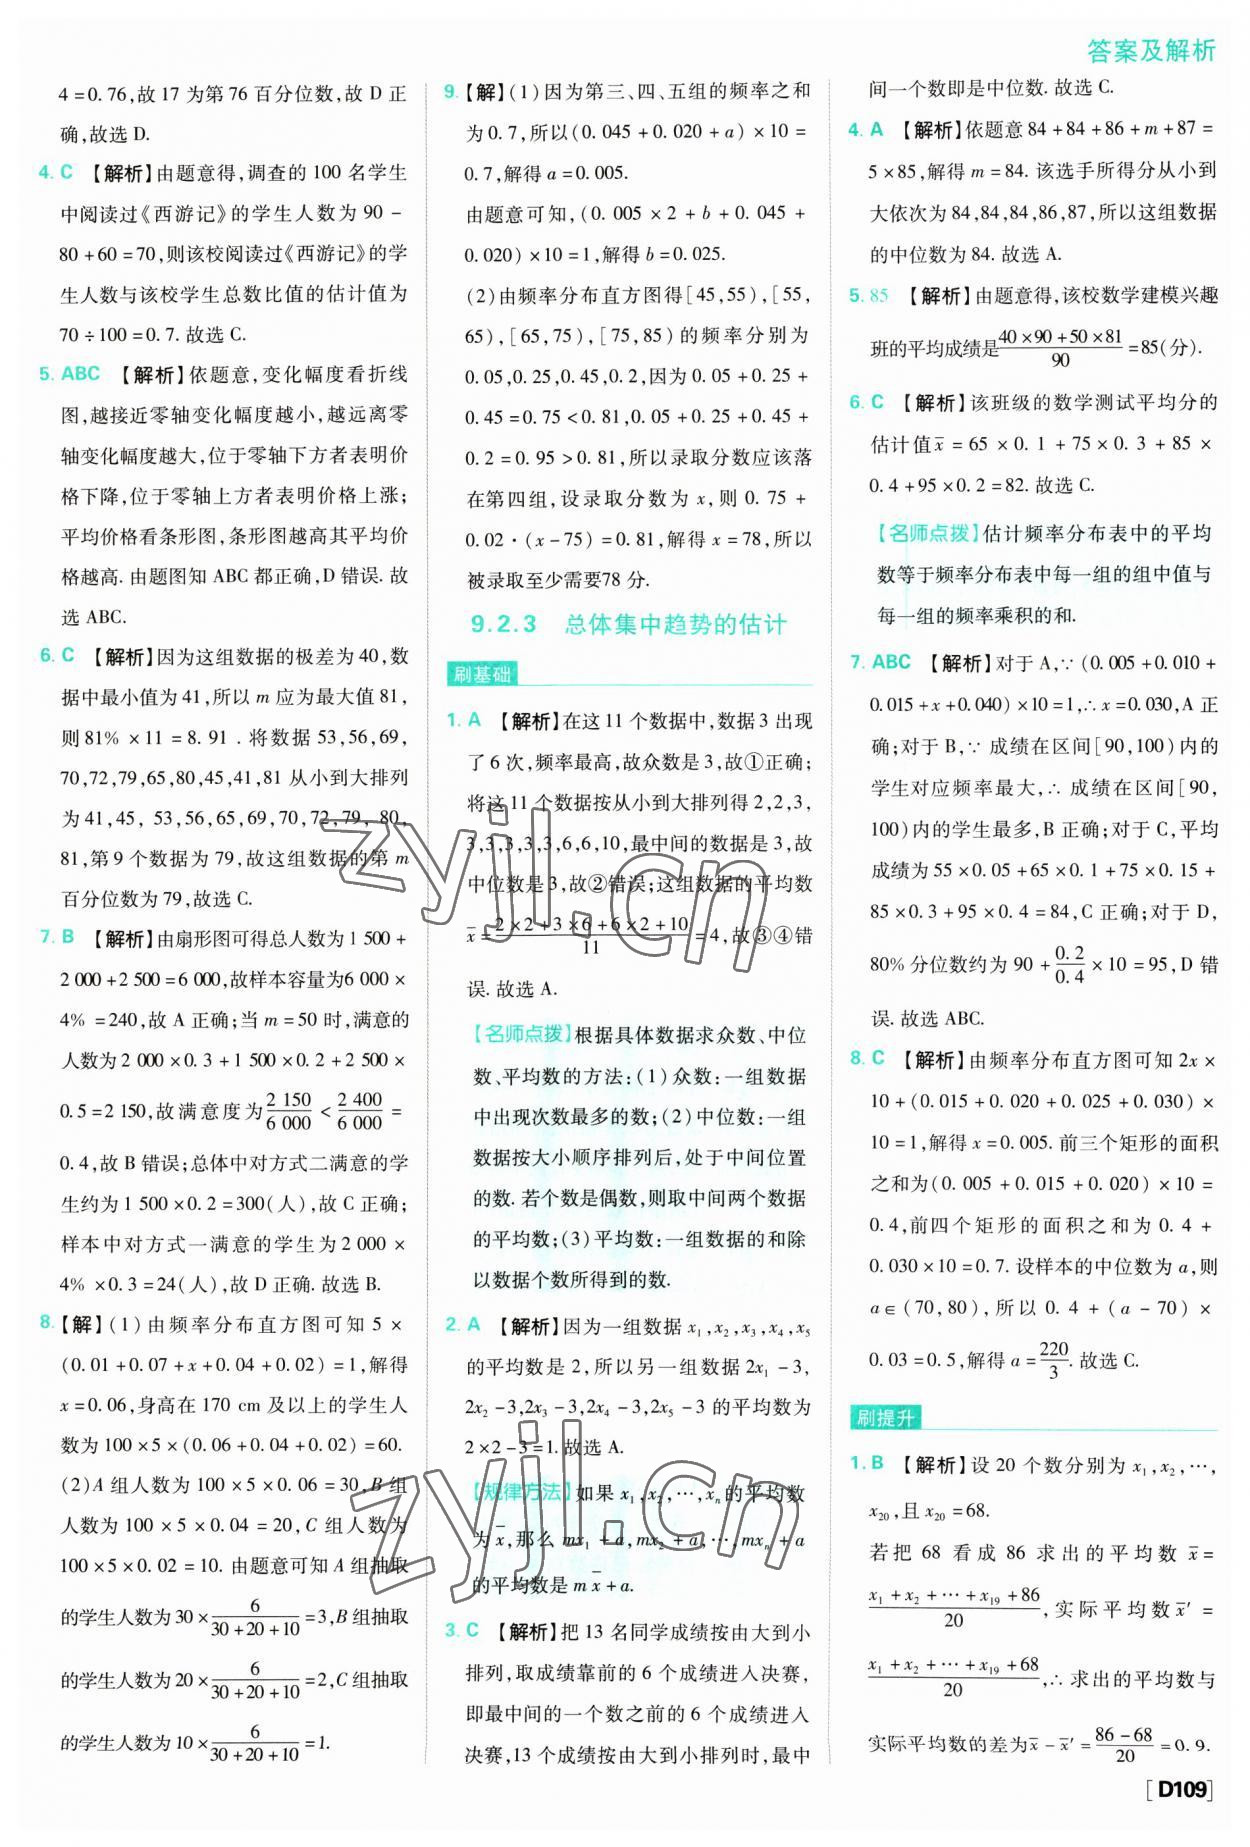 答案及解析
4=0.76,故17为第76百分位数,故D正
确,故选D.
4. C 【解析】由题意得,调查的100名学生
中阅读过《西游记》的学生人数为90-
80+60=70,则该校阅读过《西游记》的学
生人数与该校学生总数比值的估计值为
70÷100=0.7.故选C.
5. ABC 【解析】依题意,变化幅度看折线
图,越接近零轴变化幅度越小,越远离零
轴变化幅度越大,位于零轴下方者表明价
格下降,位于零轴上方者表明价格上涨;
平均价格看条形图,条形图越高其平均价
格越高.由题图知ABC都正确,D错误.故
选ABC.
6. C 【解析】因为这组数据的极差为40,数
据中最小值为41,所以m应为最大值81,
则81%×11=8.91.将数据53,56,69,
70,72,79,65,80,45,41,81从小到大排列
为41,45,53,56,65,69,70,72,79,80,
81,第9个数据为79,故这组数据的第m
百分位数为79,故选C.
7. B 【解析】由扇形图可得总人数为1 500+
2 000+2 500=6 000,故样本容量为6 000×
4%=240,故A正确;当m=50时,满意的
人数为2 000×0.3+1 500×0.2+2 500×
0.5=2 150,故满意度为2 150/6 000<2 400/6 000=
0.4,故B错误;总体中对方式二满意的学
生约为1 500×0.2=300(人),故C正确;
样本中对方式一满意的学生为2 000×
4%×0.3=24(人),故D正确.故选B.
8.【解】(1)由频率分布直方图可知5×
(0.01+0.07+x+0.04+0.02)=1,解得
x=0.06,身高在170 cm及以上的学生人
数为100×5×(0.06+0.04+0.02)=60.
(2)A组人数为100×5×0.06=30,B组
人数为100×5×0.04=20,C组人数为
100×5×0.02=10.由题意可知A组抽取
的学生人数为30×6/(30+20+10)=3,B组抽取
的学生人数为20×6/(30+20+10)=2,C组抽取
的学生人数为10×6/(30+20+10)=1.
9.【解】(1)因为第三、四、五组的频率之和
为0.7,所以(0.045+0.020+a)×10=
0.7,解得a=0.005.
由题意可知,(0.005×2+b+0.045+
0.020)×10=1,解得b=0.025.
(2)由频率分布直方图得[45,55),[55,
65),[65,75),[75,85)的频率分别为
0.05,0.25,0.45,0.2,因为0.05+0.25+
0.45=0.75<0.81,0.05+0.25+0.45+
0.2=0.95>0.81,所以录取分数应该落
在第四组,设录取分数为x,则0.75+
0.02·(x-75)=0.81,解得x=78,所以
被录取至少需要78分.
9.2.3 总体集中趋势的估计
刷基础
1. A 【解析】在这11个数据中,数据3出现
了6次,频率最高,故众数是3,故①正确;
将这11个数据按从小到大排列得2,2,3,
3,3,3,3,3,6,6,10,最中间的数据是3,故
中位数是3,故②错误;这组数据的平均数
x̄=(2×2+3×6+6×2+10)/11=4,故③④错
误.故选A.
【名师点拨】根据具体数据求众数、中位
数、平均数的方法:(1)众数:一组数据
中出现次数最多的数;(2)中位数:一组
数据按大小顺序排列后,处于中间位置
的数.若个数是偶数,则取中间两个数据
的平均数;(3)平均数:一组数据的和除
以数据个数所得到的数.
2. A 【解析】因为一组数据x₁,x₂,x₃,x₄,x₅
的平均数是2,所以另一组数据2x₁-3,
2x₂-3,2x₃-3,2x₄-3,2x₅-3的平均数为
2×2-3=1.故选A.
【规律方法】如果x₁,x₂,⋯,xₙ的平均数
为x̄,那么mx₁+a,mx₂+a,⋯,mxₙ+a
的平均数是mx̄+a.
3. C 【解析】把13名同学成绩按由大到小
排列,取成绩靠前的6个成绩进入决赛,
即最中间的一个数之前的6个成绩进入
决赛,13个成绩按由大到小排列时,最中
间一个数即是中位数.故选C.
4. A 【解析】依题意84+84+86+m+87=
5×85,解得m=84.该选手所得分从小到
大依次为84,84,84,86,87,所以这组数据
的中位数为84.故选A.
5. 85 【解析】由题意得,该校数学建模兴趣
班的平均成绩是(40×90+50×81)/90=85(分).
6. C 【解析】该班级的数学测试平均分的
估计值x̄=65×0.1+75×0.3+85×
0.4+95×0.2=82.故选C.
【名师点拨】估计频率分布表中的平均
数等于频率分布表中每一组的组中值与
每一组的频率乘积的和.
7. ABC 【解析】对于A,∵(0.005+0.010+
0.015+x+0.040)×10=1,∴x=0.030,A正
确;对于B,∵成绩在区间[90,100)内的
学生对应频率最大,∴成绩在区间[90,
100)内的学生最多,B正确;对于C,平均
成绩为55×0.05+65×0.1+75×0.15+
85×0.3+95×0.4=84,C正确;对于D,
80%分位数约为90+0.2/0.4×10=95,D错
误.故选ABC.
8. C 【解析】由频率分布直方图可知2x×
10+(0.015+0.020+0.025+0.030)×
10=1,解得x=0.005.前三个矩形的面积
之和为(0.005+0.015+0.020)×10=
0.4,前四个矩形的面积之和为0.4+
0.030×10=0.7.设样本的中位数为a,则
a∈(70,80),所以0.4+(a-70)×
0.03=0.5,解得a=220/3.故选C.
刷提升
1. B 【解析】设20个数分别为x₁,x₂,⋯,
x₂₀,且x₂₀=68.
若把68看成86求出的平均数x̄=
(x₁+x₂+⋯+x₁₉+86)/20,实际平均数x̄′=
(x₁+x₂+⋯+x₁₉+68)/20,∴求出的平均数与
实际平均数的差为x̄-x̄′=(86-68)/20=0.9.
[D109]
zyjl.cn
zyjl.cn